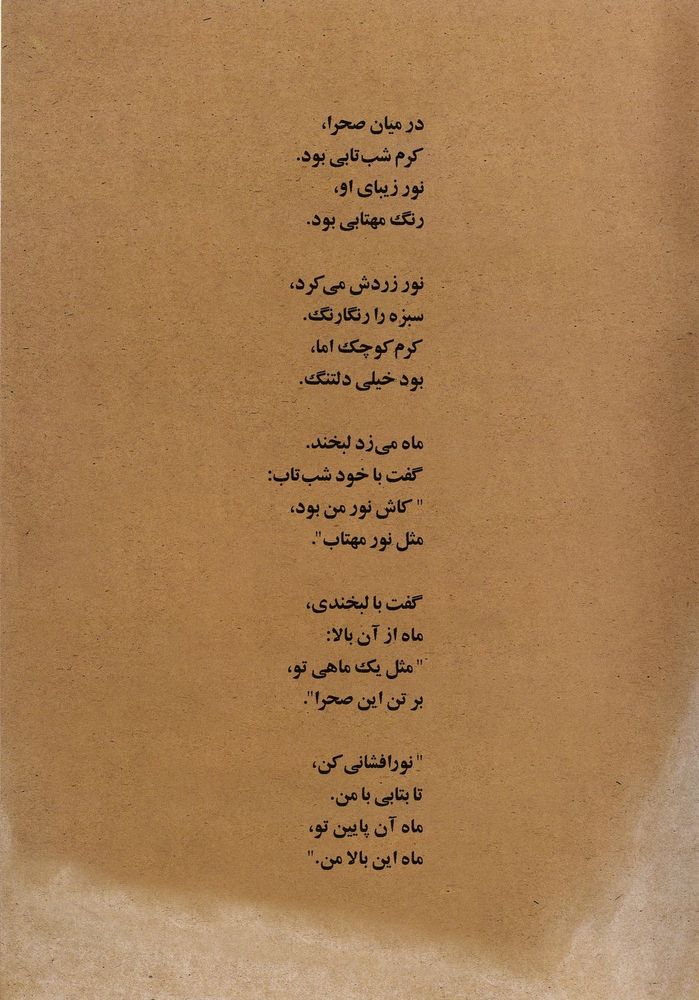 در میان صحرا،
کرم شب‌تابی بود.
نور زیبای او،
رنگ مهتابی بود.
نور زردش می‌کرد،
سبزه را رنگارنگ.
کرم کوچک اما،
بود خیلی دلتنگ.
ماه می‌زد لبخند.
گفت با خود شب‌تاب:
" کاش نور من بود،
مثل نور مهتاب".
گفت با لبخندی،
ماه از آن بالا:
" مثل یک ماهی تو،
بر تن این صحرا".
" نورافشانی کن،
تا بتابی با من.
ماه آن پایین تو،
ماه این بالا من."